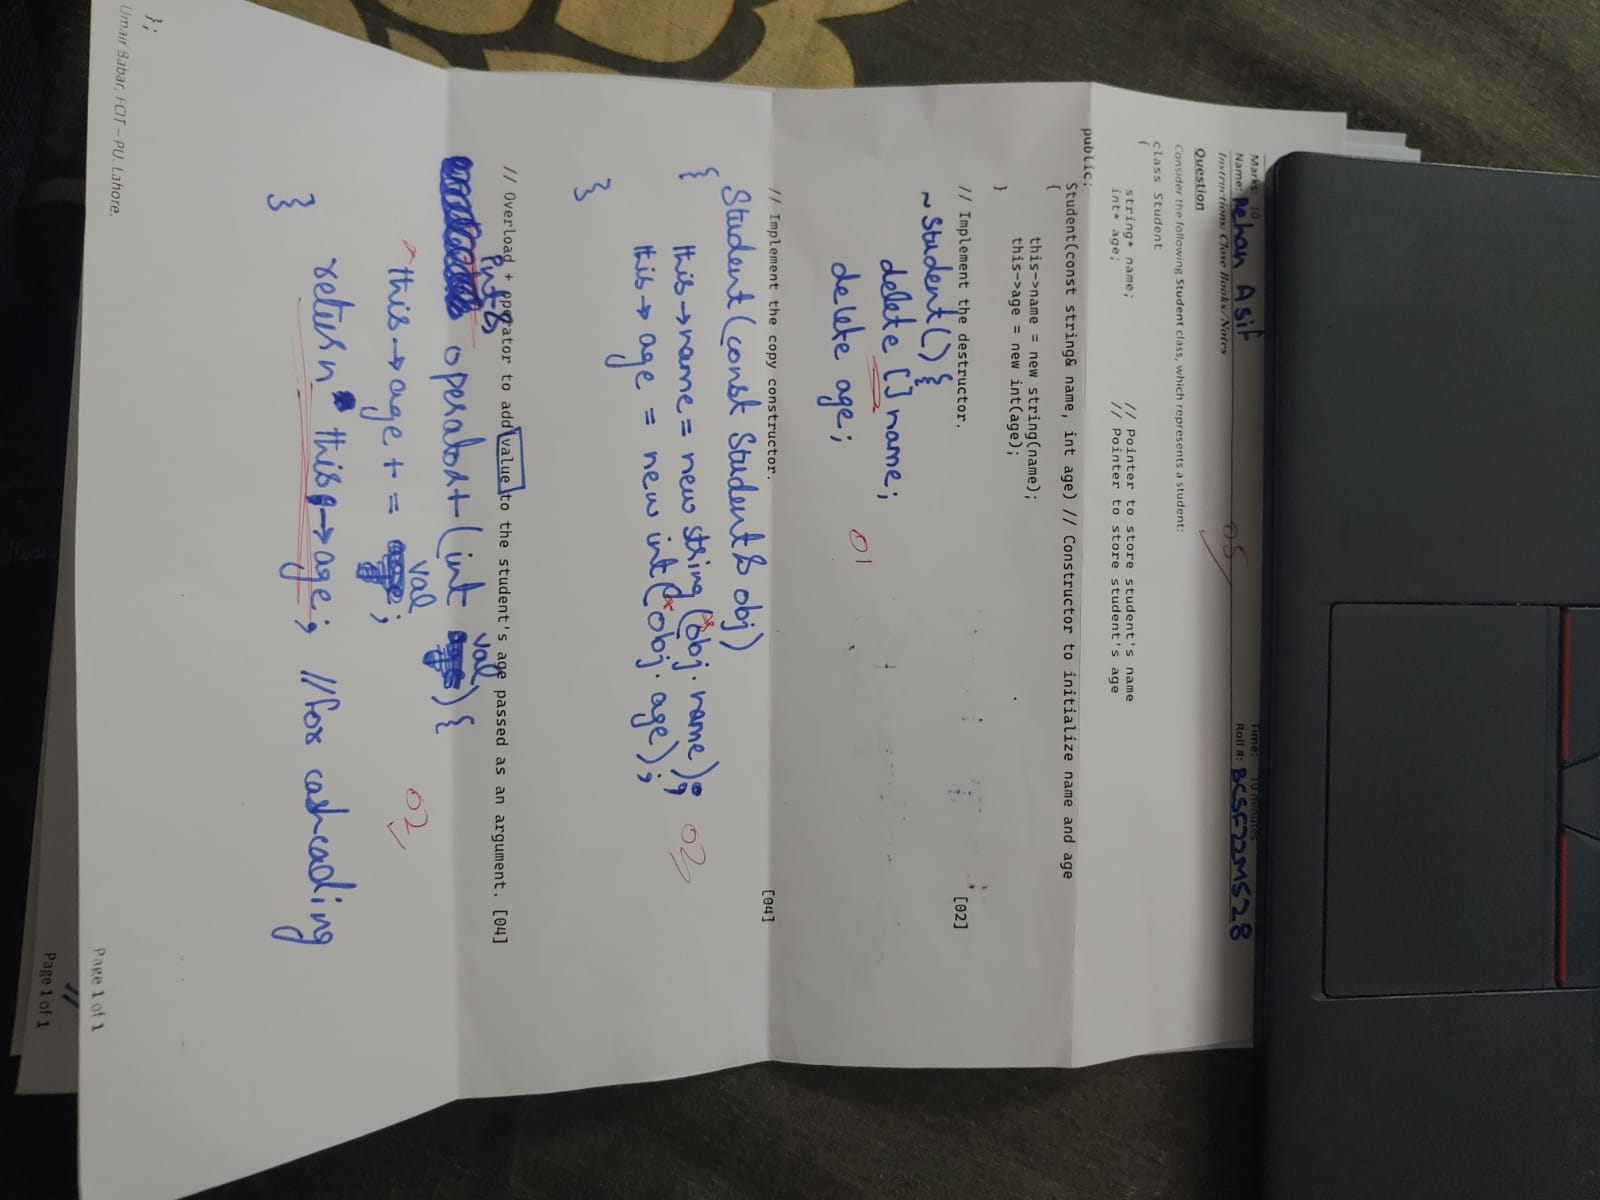 Marks: 10
Time: 10 minutes
Name: Rehan Asif
Roll #: BCSF22M528
Instructions: Close Books/Notes
05
Question
Consider the following Student class, which represents a student:
class Student
{
string* name; // Pointer to store student's name
int* age; // Pointer to store student's age
public:
Student(const string& name, int age) // Constructor to initialize name and age
{
this->name = new string(name);
this->age = new int(age);
}
// Implement the destructor. [02]
~Student() {
delete [] name;
delete age;
01
// Implement the copy constructor. [04]
Student (const Student & obj)
{ this→name = new string (*obj.name);
this→age = new int (*obj.age);
02
}
// Overload + operator to add value to the student's age passed as an argument. [04]
int &
operator+ (int val) {
*this→age += val;
02
return this→age; //for cashcading
}
};
Umair Babar, FCIT – PU. Lahore.
Page 1 of 1
Page 1 of 1